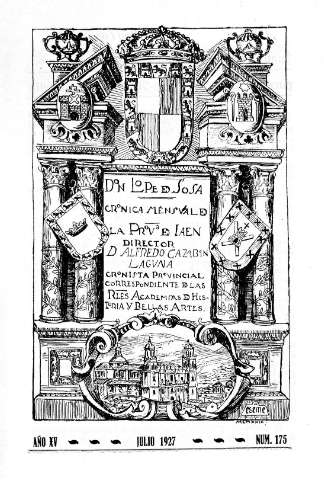 DON LOPE D SOSA
CRONICA MENSVAL D
LA PROVª D JAEN
DIRECTOR
D ALFREDO CAZABAN
LAGVNA
CRONISTA PROVINCIAL
CORRESPONDIENTE D LAS
RLES ACADEMIAS D HIS
TORIA Y BELLAS ARTES.
AÑO XV JULIO 1927 NUM. 175